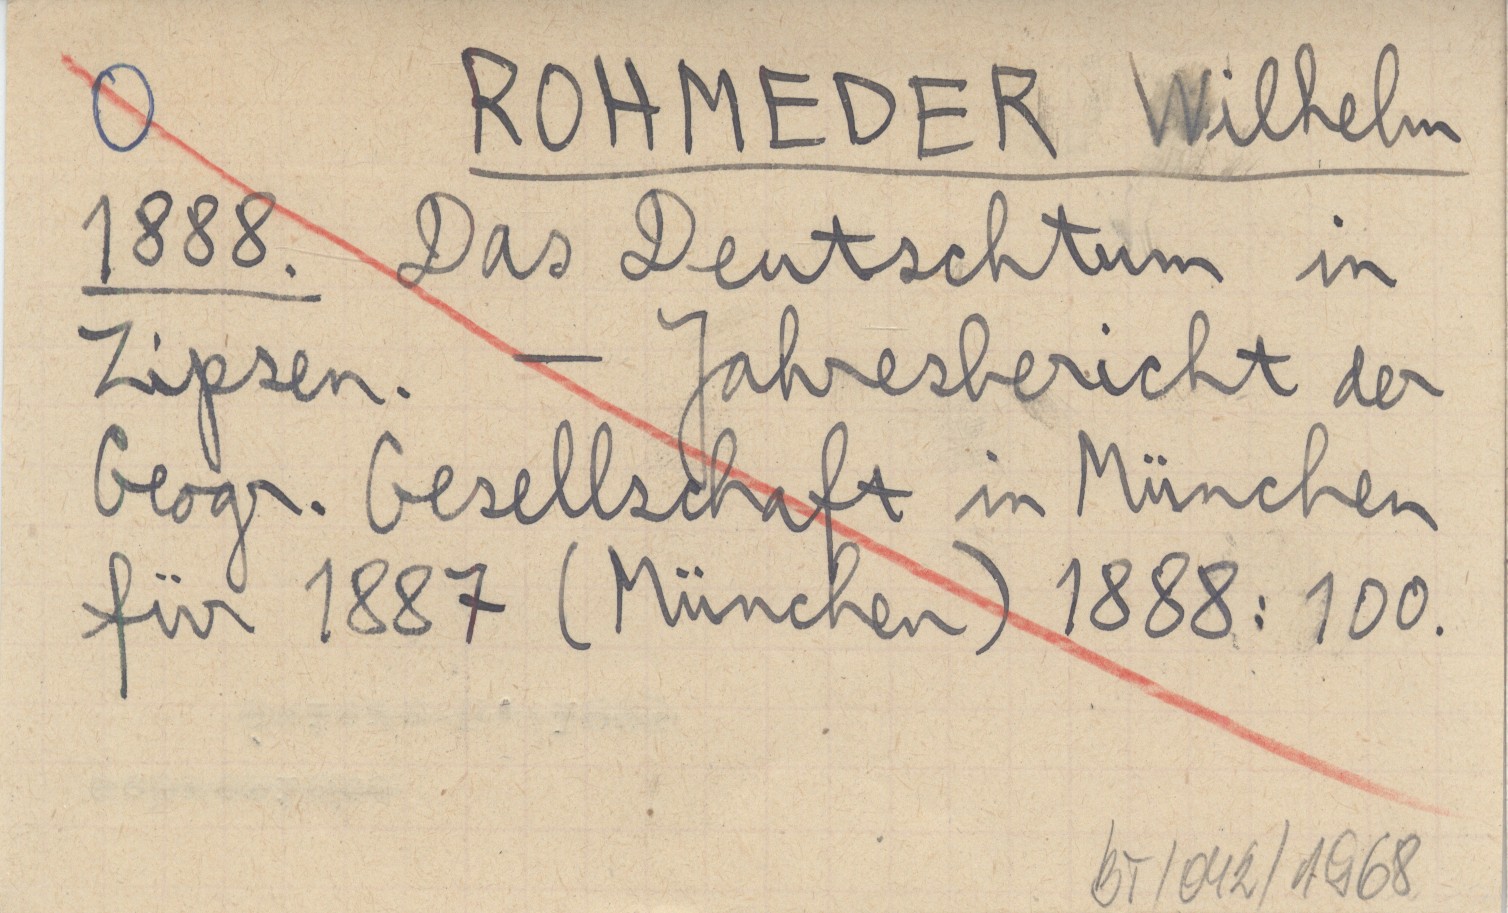 O ROHMEDER Wilhelm
1888. Das Deutschtum in
Zipsen. — Jahresbericht der
Geogr. Gesellschaft in München
für 1887 (München) 1888: 100.
BT/042/1968